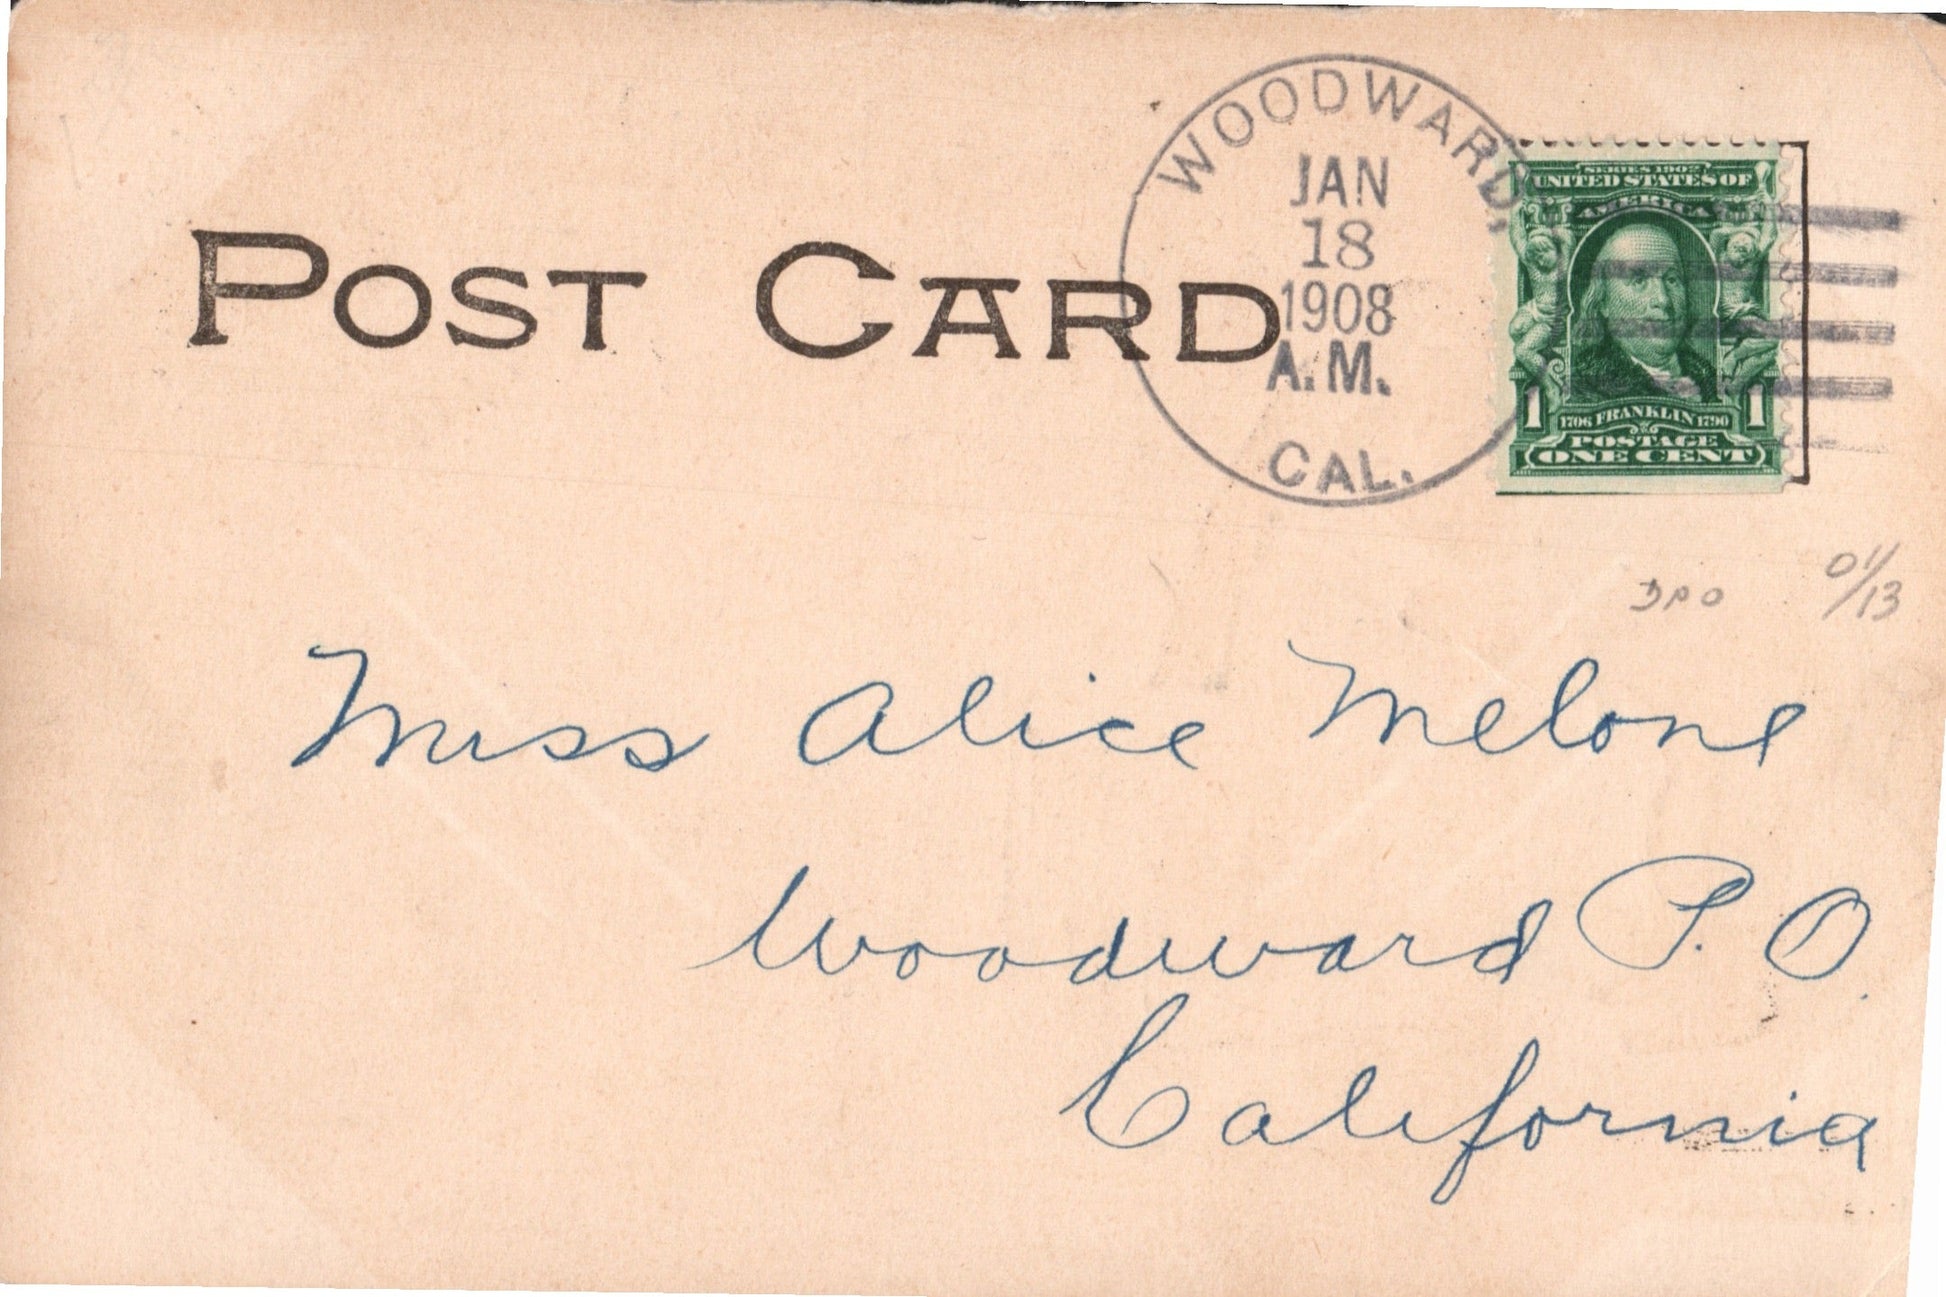 POST CARD
WOODWARD,
JAN
18
1908
A.M.
CAL.
SERIES 1902
UNITED STATES OF
AMERICA
1706 FRANKLIN 1790
1 1
POSTAGE
ONE CENT
DPO 01/13
Miss Alice Melone
Woodward P.O.
California